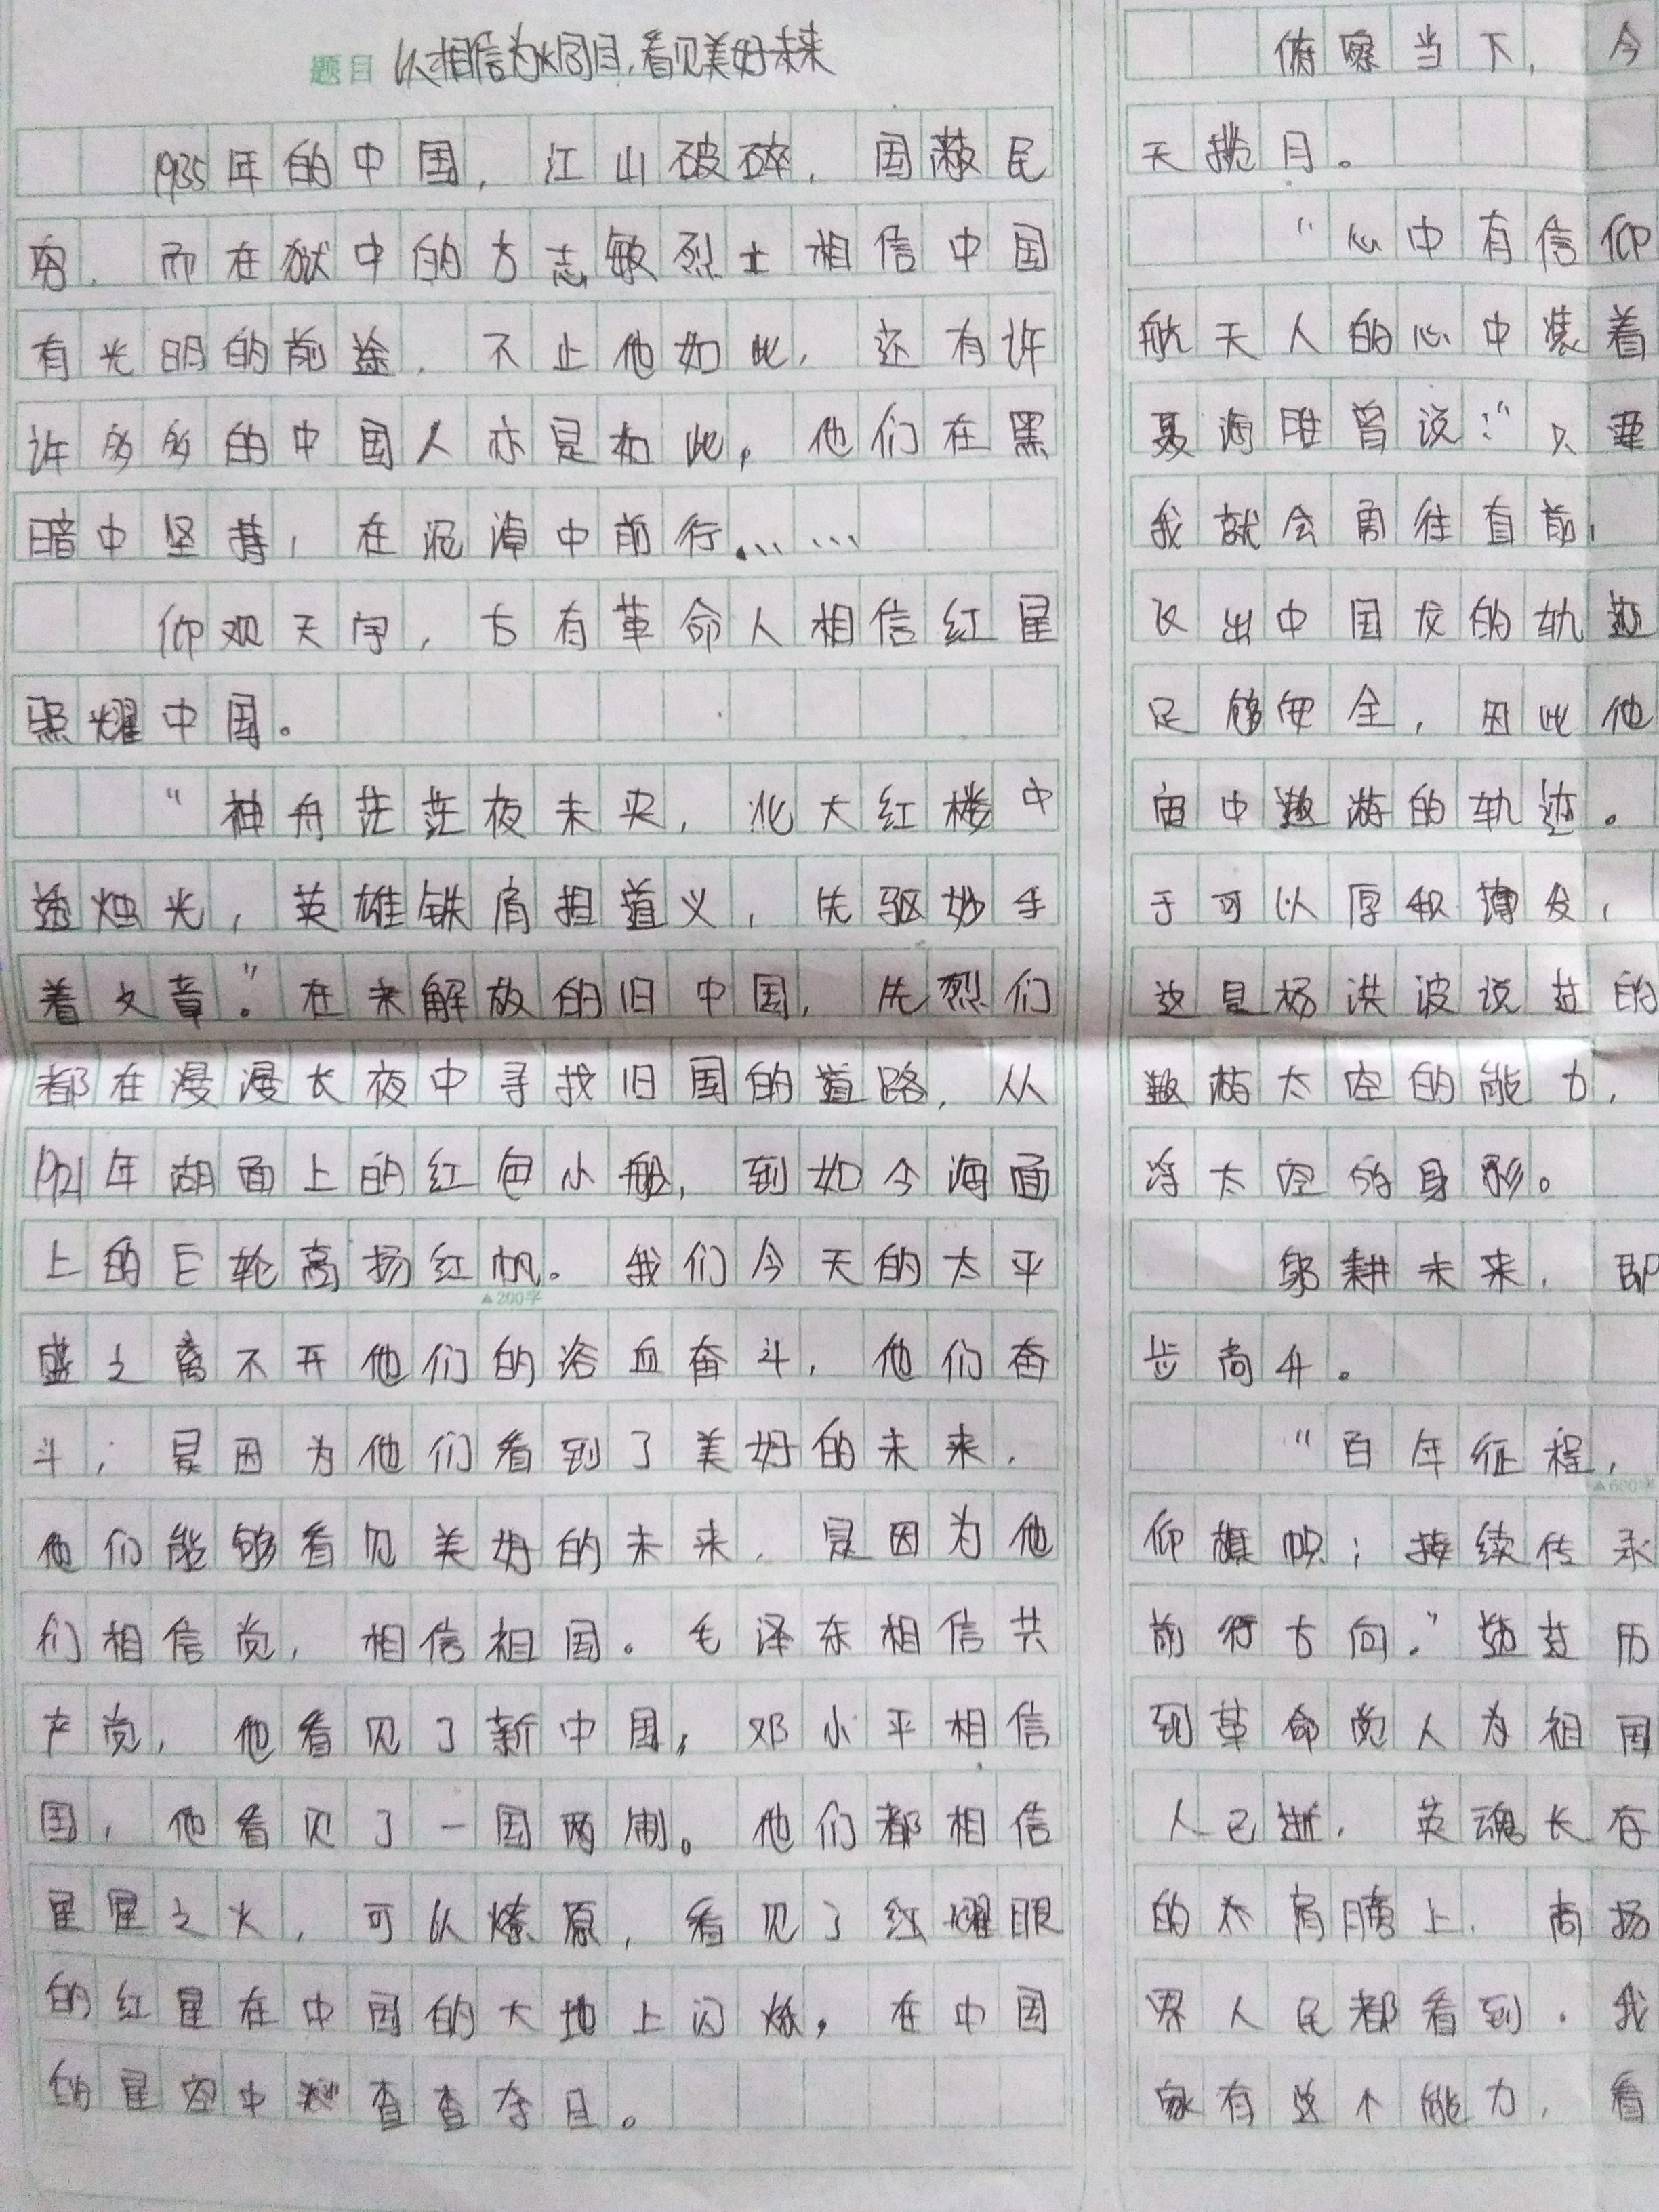 题目 以相信为炬目，看见美好未来
1935年的中国，江山破碎，国蔽民
穷，而在狱中的方志敏烈士相信中国
有光明的前途，不止他如此，还有许
许多多的中国人亦是如此，他们在黑
暗中坚持，在泥潭中前行……
仰观天宇，古有革命人相信红星
照耀中国。
“神舟茫茫夜未央，北大红楼中
透烛光，英雄铁肩担道义，先驱妙手
着文章。”在未解放的旧中国，先烈们
都在漫漫长夜中寻找旧国的道路，从
1921年湖面上的红色小船，到如今海面
上的巨轮高扬红帆。我们今天的太平
▲200字
盛之离不开他们的浴血奋斗，他们奋
斗，是因为他们看到了美好的未来，
他们能够看见美好的未来，是因为他
们相信党，相信祖国。毛泽东相信共
产党，他看见了新中国，邓小平相信
国，他看见了一国两制。他们都相信
星星之火，可以燎原，看见了红耀眼
的红星在中国的大地上闪烁，在中国
的星空中查查夺目。
俯察当下，今
天揽月。
“心中有信仰
航天人的心中装着
聂海胜曾说：“只要
我就会勇往直前，
飞出中国龙的轨迹
足够安全，因此他
宙中遨游的轨迹。
于可以厚积薄发，
这是杨洪波说过的
遨游太空的能力，
浮太空的身影。
躬耕未来，即
步向升。
“百年征程，
▲600字
仰旗帜；接续传承
前行方向。”越过历
到革命党人为祖国
人已逝，英魂长存
的本肩膀上，高扬
界人民都看到，我
家有这个能力，看